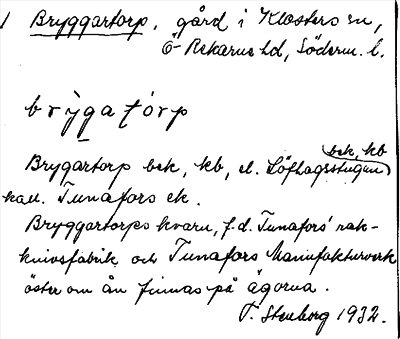 1 Bryggartorp, gård i Klosters sn,
Ö-Rekarne hd, Söderm. l.
brỳgatórp
bek, kb
Brygartorp bek, kb, el. Löfhagsstugan
kall. Tunafors ek.
Bryggartorps kvarn, f.d. Tunafors' rak-
knivsfabrik och Tunafors Manufakturverk
öster om ån finnas på ägorna.
T. Stenborg 1932.